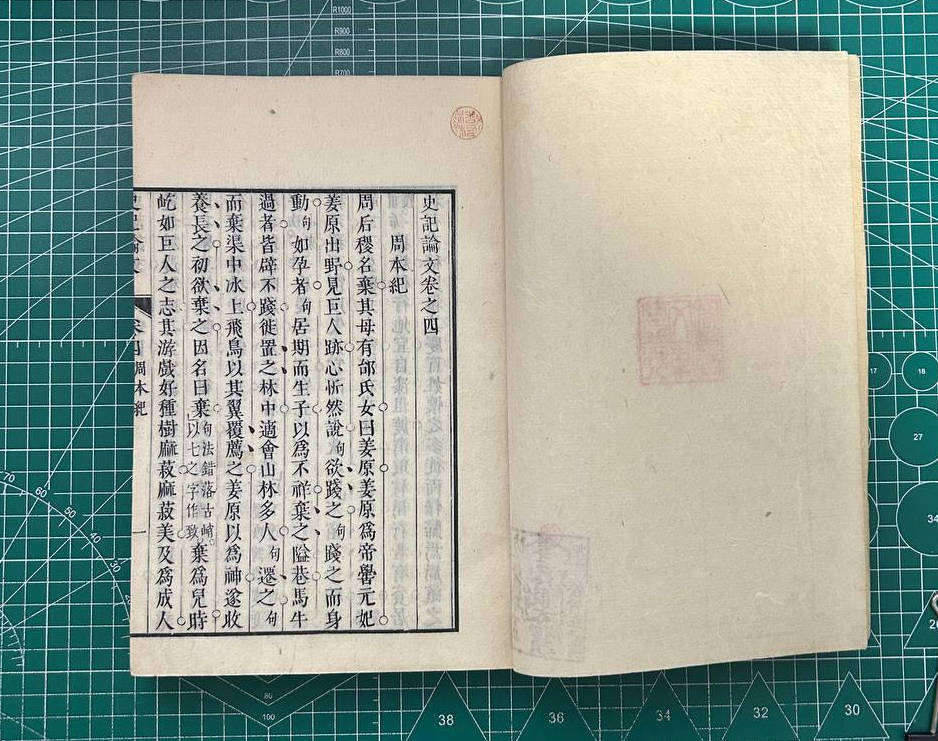 史記論文卷之四
周本紀
周后稷名棄其母有邰氏女曰姜原姜原爲帝嚳元妃
姜原出野見巨人跡心忻然說句欲踐之句踐之而身
動句如孕者句居期而生子以爲不祥棄之隘巷馬牛
過者皆辟不踐徙置之林中適會山林多人句遷之句
而棄渠中冰上飛鳥以其翼覆薦之姜原以爲神遂收
養長之初欲棄之因名曰棄句法錯落古峭以七之字作致棄爲兒時
屹如巨人之志其游戲好種樹麻菽麻菽美及爲成人
史記論文 卷四 周本紀 一
R1000
R900
R800
R700
17
18
27
34
70
60
50
40
80
100
38
36
34
32
30